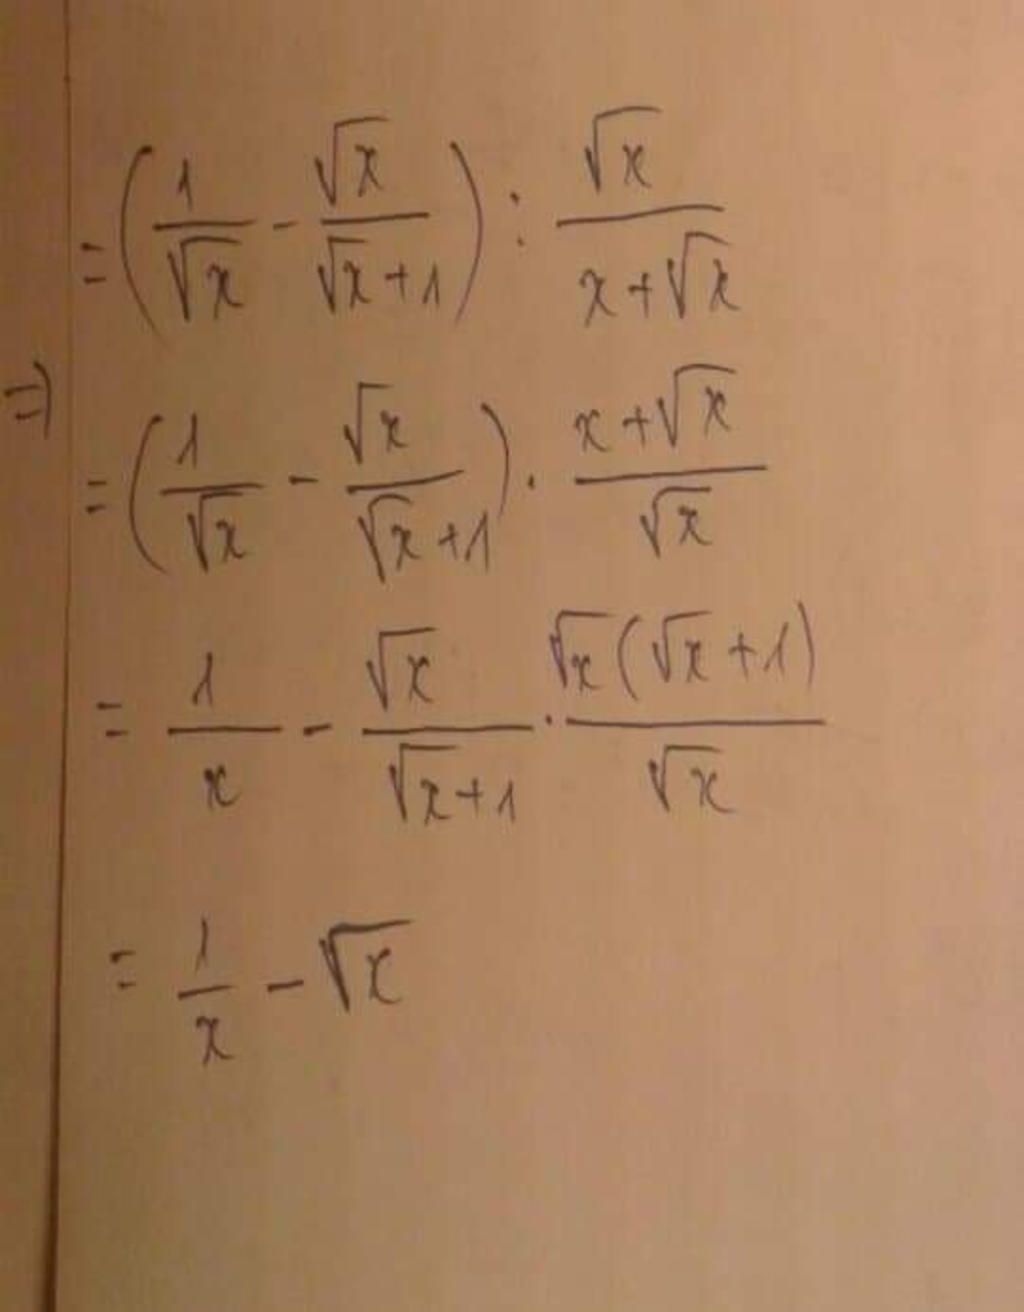 = (1/√x - √x/(√x+1)) : √x/(x+√x)
⇒
= (1/√x - √x/(√x+1)) · (x+√x)/√x
= 1/x - √x/(√x+1) · √x(√x+1)/√x
= 1/x - √x